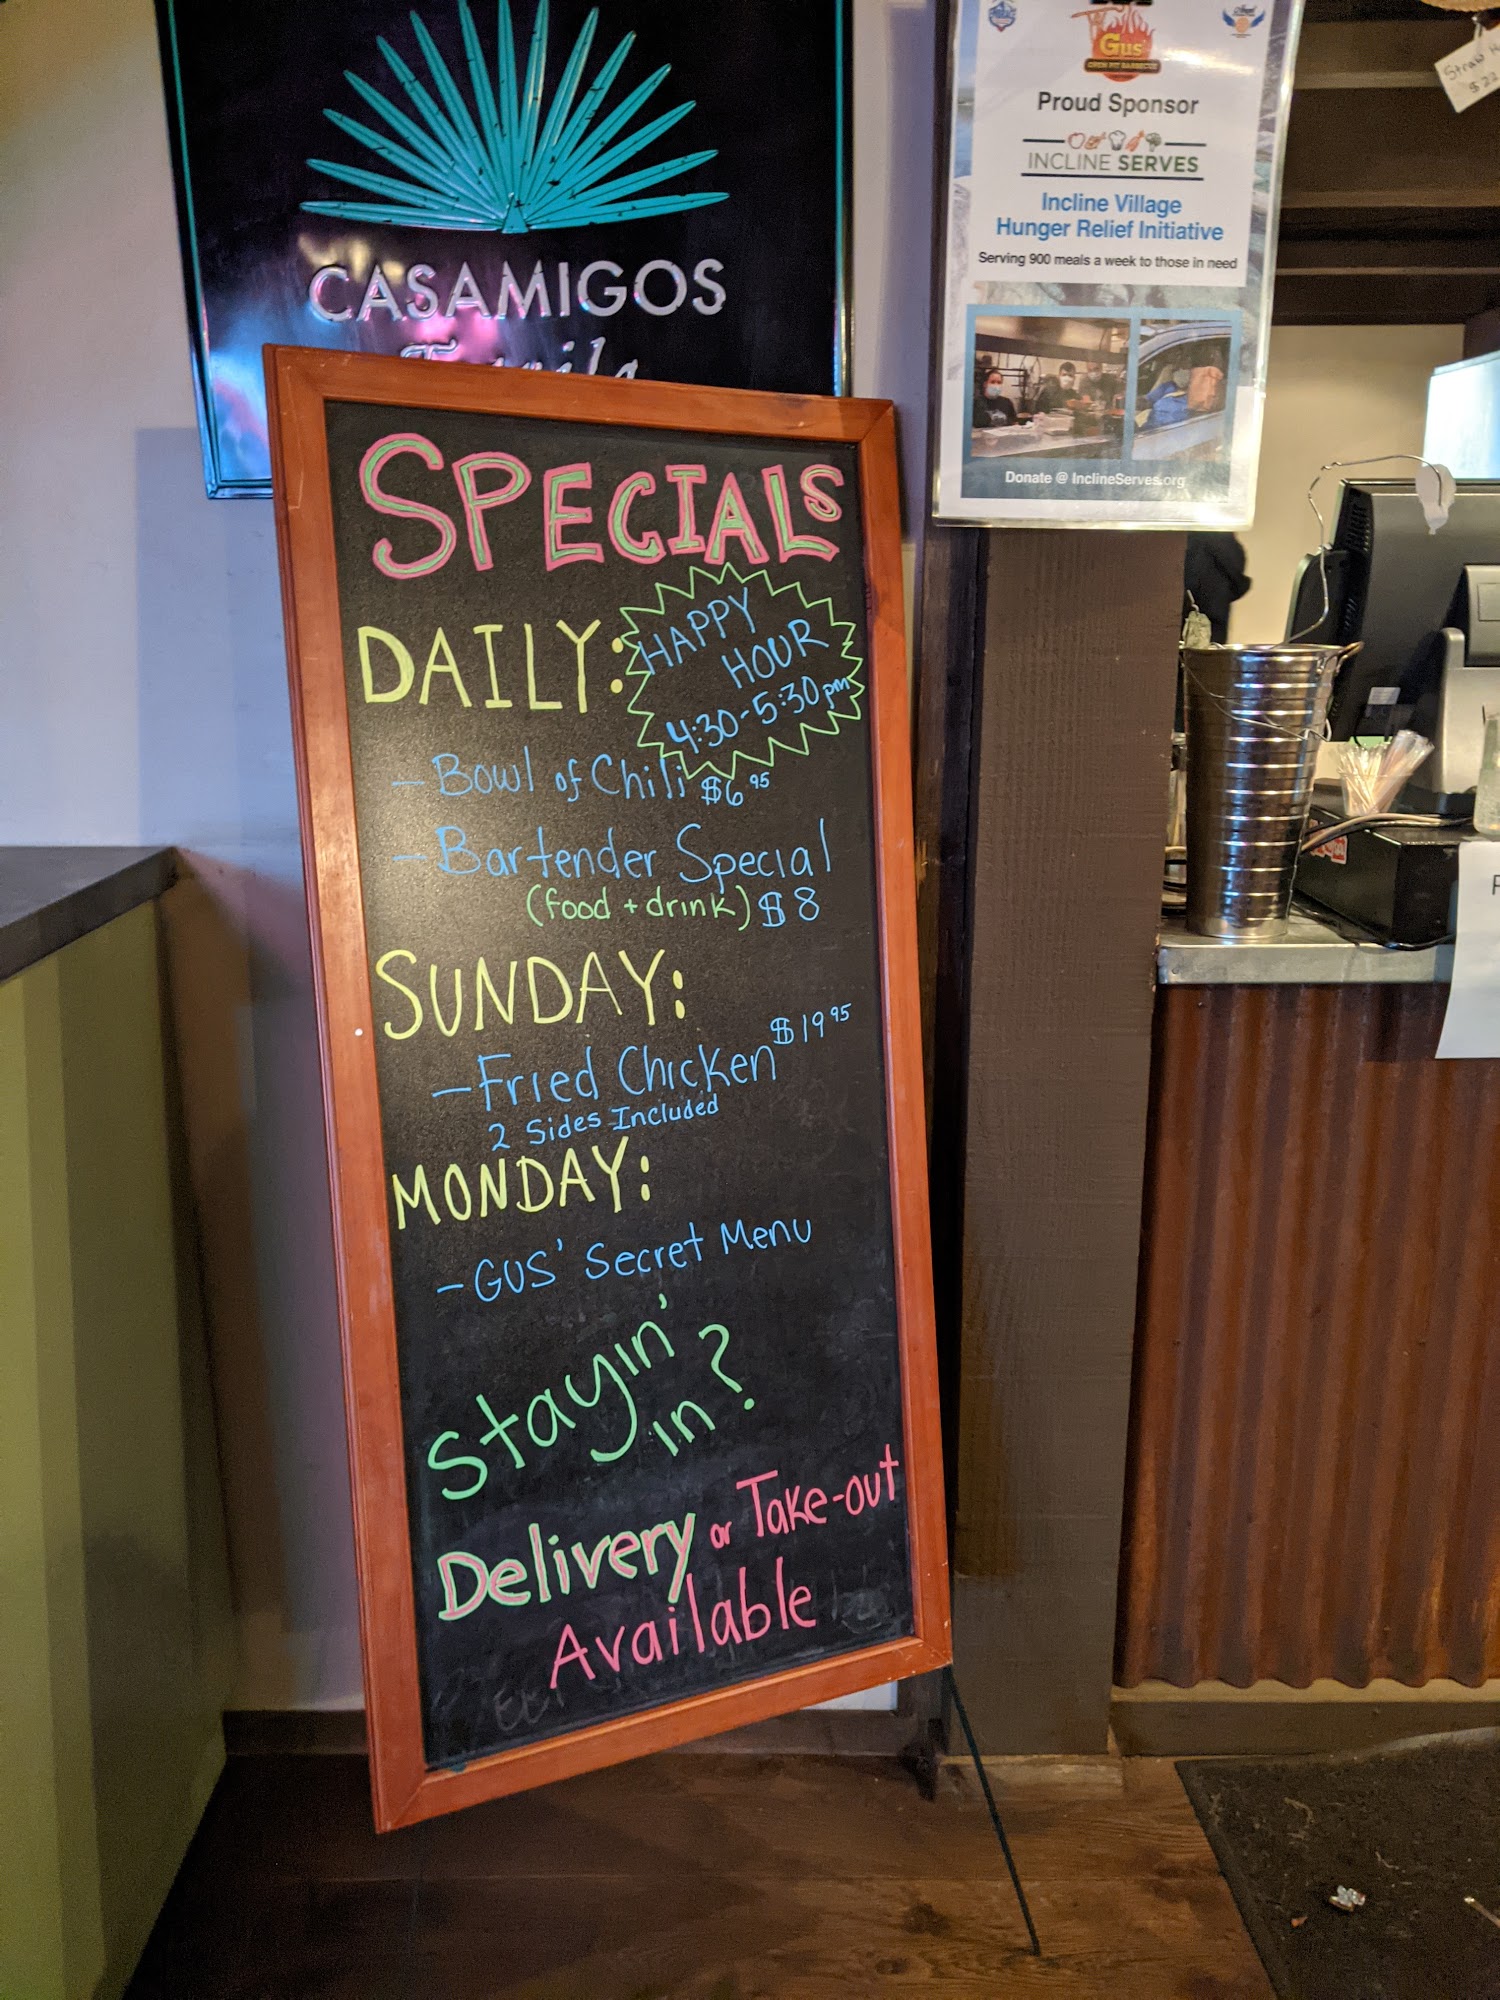 CASAMIGOS
Tequila
Gus'
OPEN PIT BARBECUE
Proud Sponsor
INCLINE SERVES
Incline Village
Hunger Relief Initiative
Serving 900 meals a week to those in need
Donate @ InclineServes.org
Straw
$22
SPECIALS
DAILY:
HAPPY
HOUR
4:30-5:30pm
- Bowl of Chili $6 95
- Bartender Special
(food + drink) $8
SUNDAY:
- Fried Chicken $19 95
2 Sides Included
MONDAY:
- GUS' Secret Menu
Stayin'
in?
Delivery or Take-out
Available